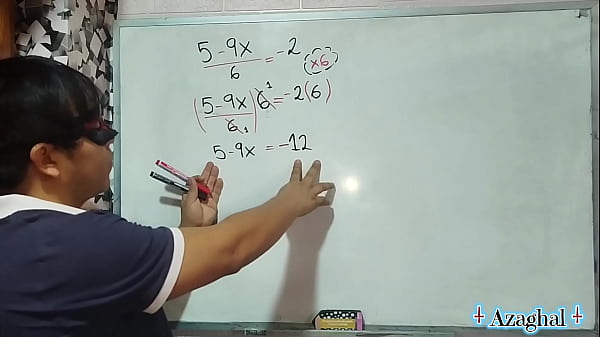 5-9x/6 = -2 (x6)
(5-9x/6) 6¹ = -2(6)
5-9x = -12
‡ Azaghal ‡